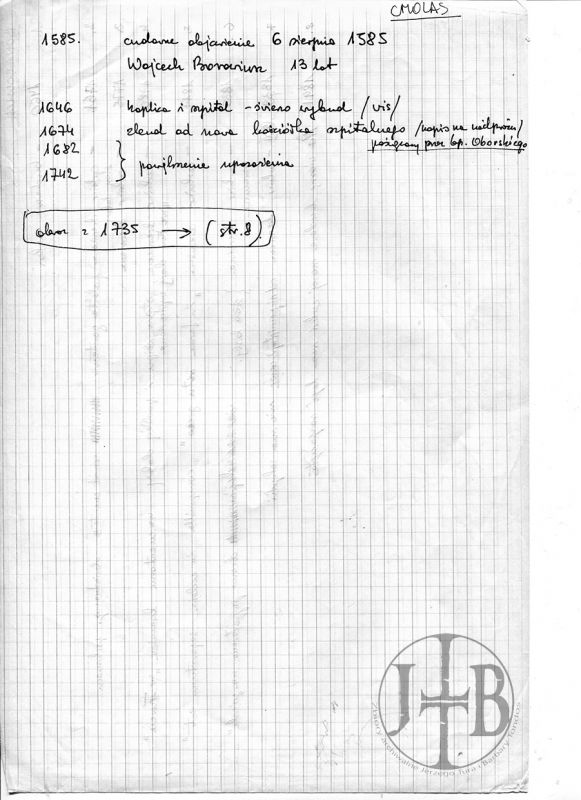 CMOLAS
1585. cudowne objawienie 6 sierpnia 1585
Wojciech 13 lat
1646 kaplica i szpital - świeżo wybud /vis/
1674 od nowa kościółka szpitalnego /napis na nadprożu/
poświęcony przez bp. Oborskiego
1682
1742 } powiększenie uposażenia
obraz z 1735 → (str. 8)
JTB
Zbiory archiwalne Jerzego Tura i Barbary Tondos